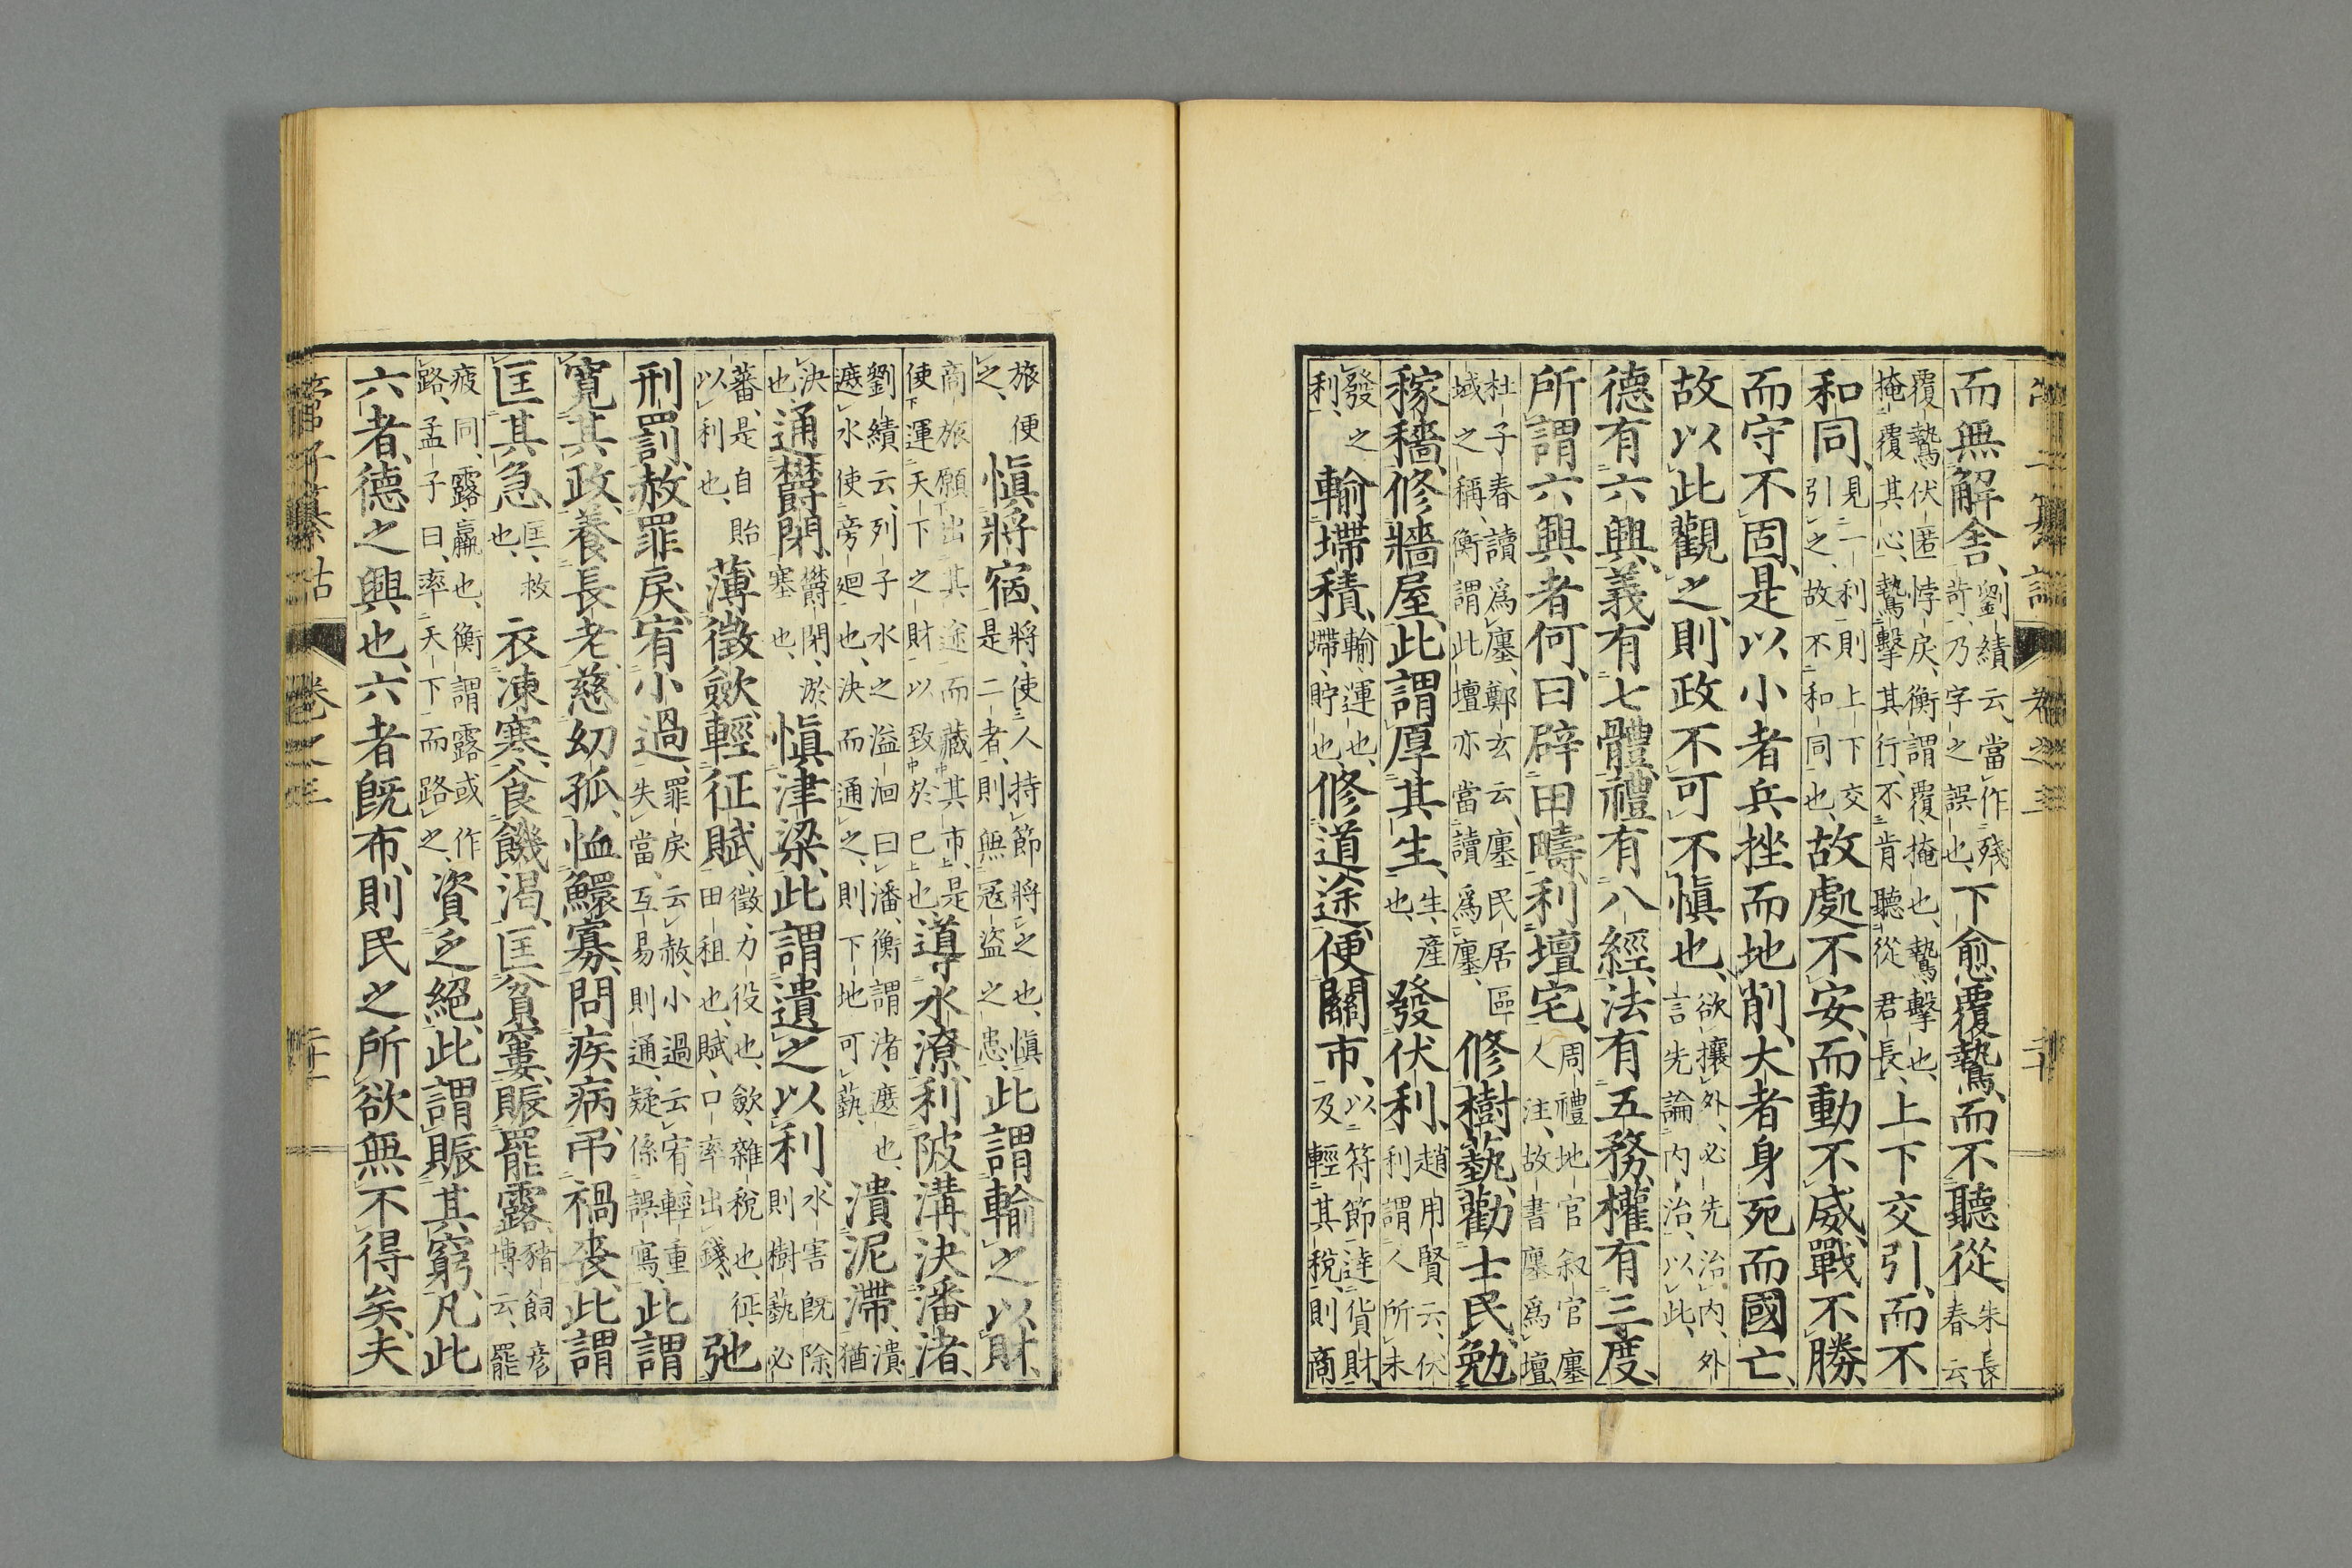 管子纂詁 卷之三 二十
而無解舍、劉績云、當作殘苛、乃字之誤也、下愈覆鷙、而不聽從、朱長春云、
覆鷙伏匿悖戾、衡謂覆掩也、鷙擊也、掩覆其心、鷙擊其行、不肯聽從君長、上下交引、而不
和同、見一利則上下交引之、故不和同也、故處不安、而動不威、戰不勝、
而守不固、是以小者兵挫而地削、大者身死而國亡、
故以此觀之、則政不可不愼也、欲攘外、必先治內、外言先論內治、以此、
德有六興、義有七體、禮有八經、法有五務、權有三度、
所謂六興者何、曰辟田疇、利壇宅、周禮地官叙官廛人注、故書廛爲壇、
杜子春讀爲廛、鄭玄云、廛民居區域之稱、衡謂此壇亦當讀爲廛、修樹藝、勸士民、勉
稼穡、修牆屋、此謂厚其生、生、產也、發伏利、趙用賢云、伏利謂人所未
發之利、輸墆積、輸、運也、墆、貯也、修道途、便關市、以符節達貨財、及輕其稅、則商
旅便之、愼將宿、將、使人持節將之也、愼是二者、則無寇盜之患、此謂輸之以財、
商旅願出其途而藏其市、是使運天下之財以致於已也、導水潦、利陂溝、決潘渚、
劉績云、列子水之溢洄曰潘、衡謂渚、遮也、遮水使旁廻也、決而通之、則下地可藝、潰泥滯、潰猶
決也、通欝閉、欝閉、淤塞也、愼津梁、此謂遺之以利、水害旣除、則樹藝必
蕃、是自貽以利也、薄徵歛、輕征賦、徵、力役也、歛、雜稅也、征、田租也、賦、口率出錢、弛
刑罰、赦罪戾、宥小過、罪戾云赦、小過云宥、輕重失當、互易則通、疑係誤寫、此謂
寬其政、養長老、慈幼孤、恤鰥寡、問疾病、弔禍喪、此謂
匡其急、匡、救也、衣凍寒、食饑渴、匡貧窶、賑罷露、豬飼彥博云、罷
疲同、露、羸也、衡謂露或作路、孟子曰、率天下而路之、資乏絕、此謂賑其窮、凡此
六者、德之興也、六者旣布、則民之所欲無不得矣、夫
管子纂詁 卷之三 二十一